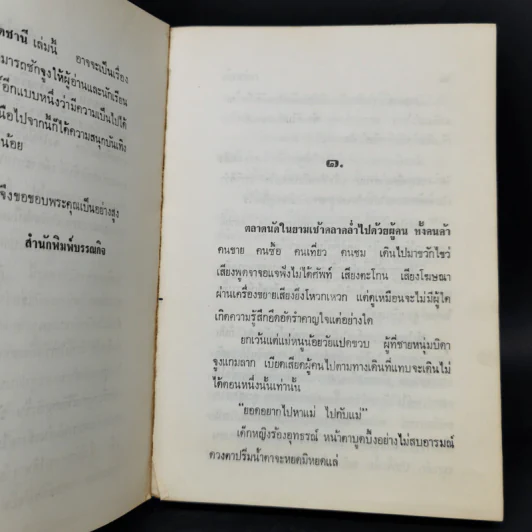 ดชานี เล่มนี้ อาจจะเป็นเรื่อง
มารถชักจูงให้ผู้อ่านและนักเรียน
อีกแบบหนึ่งว่ามีความเป็นไปได้
นือไปจากนี้ก็ได้ความสนุกบันเทิง
น้อย
จึงขอขอบพระคุณเป็นอย่างสูง
สำนักพิมพ์บรรณกิจ
๑.
ตลาดนัดในยามเช้าคลาคล่ำไปด้วยผู้คน ทั้งคนค้า
คนขาย คนซื้อ คนเที่ยว คนชม เดินไปมาขวักไขว่
เสียงพูดจาจอแจฟังไม่ได้ศัพท์ เสียงตะโกน เสียงโฆษณา
ผ่านเครื่องขยายเสียงยิ่งโหวกเหวก แต่ดูเหมือนจะไม่มีผู้ใด
เกิดความรู้สึกอึดอัดรำคาญใจแต่อย่างใด
ยกเว้นแต่แม่หนูน้อยวัยแปดขวบ ผู้ที่ชายหนุ่มบิดา
จูงแกมลาก เบียดเสียดผู้คนไปตามทางเดินที่แทบจะเดินไม่
ได้ตอนหนึ่งนั้นเท่านั้น
"ยอดอยากไปหาแม่ ไปกับแม่"
เด็กหญิงร้องอุทธรณ์ หน้าตาบูดบึ้งอย่างไม่สบอารมณ์
ดวงตาปริ่มน้ำตาจะหยดมิหยดแล่